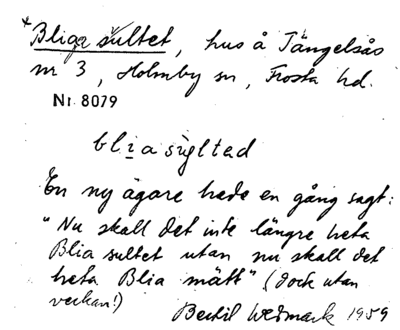 *Bliga sultet, hus å Tängelsås
nr 3, Holmby sn, Frosta hd.
Nr 8079
blia sigltad
En ny ägare hade en gång sagt:
"Nu skall det inte längre heta
Blia sultet utan nu skall det
heta Blia mätt" (dock utan
verkan!)
Bertil Wedmark 1959